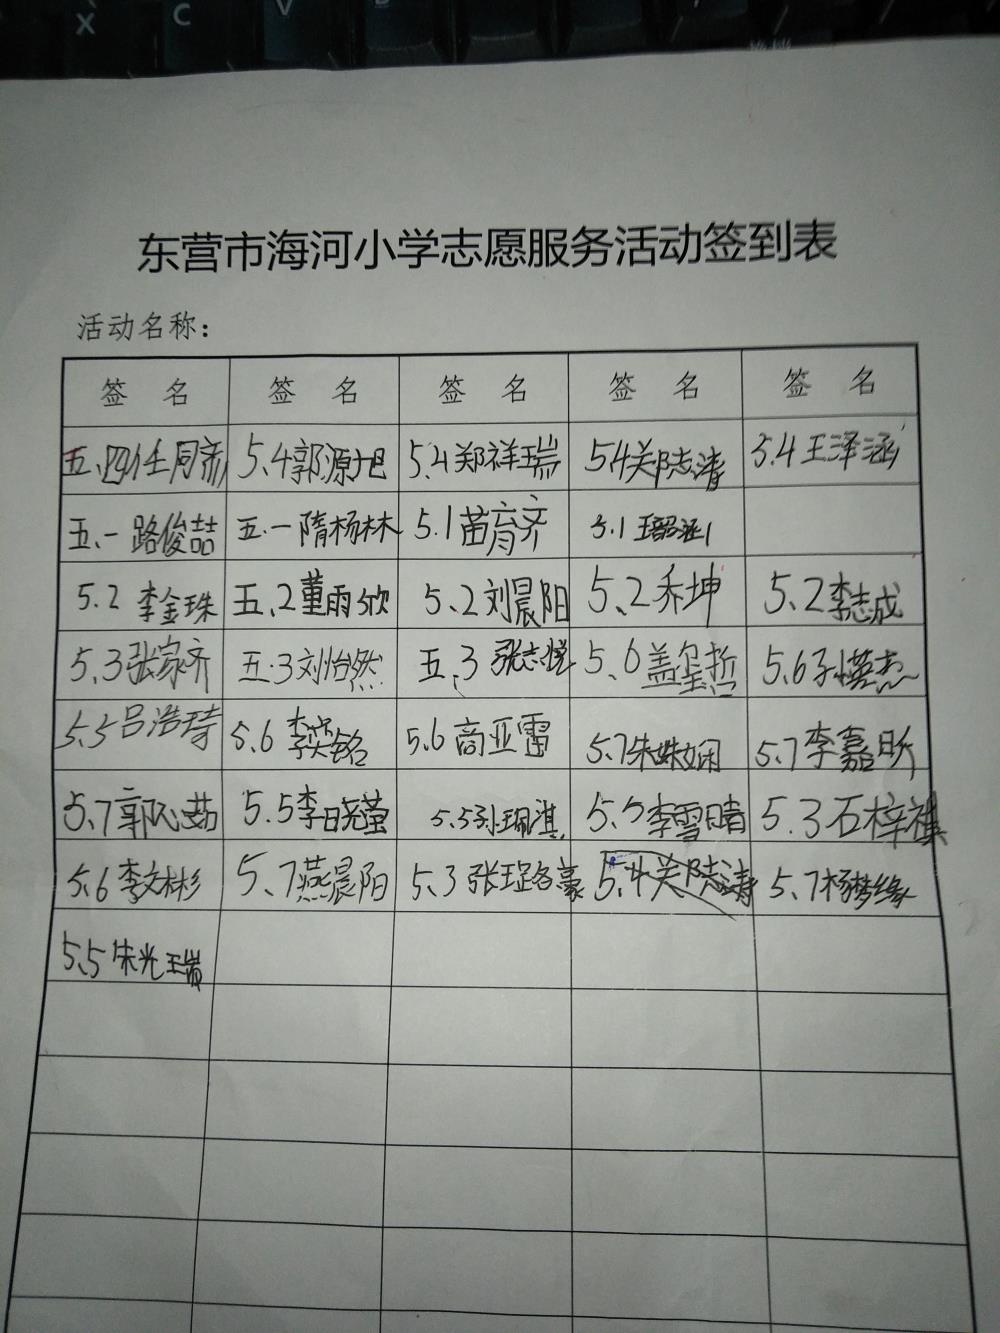 X C V
东营市海河小学志愿服务活动签到表
活动名称：
签 名 签 名 签 名 签 名 签 名
五、四任同 5.4郭源旭 5.4郑祥瑞 5.4关陆涛 5.4王泽涵
五、一路俊喆 五、一隋杨林 5.1苗育齐 5.1
5.2李金珠 五、2董雨欣 5.2刘晨阳 5、2乔坤 5、2李志成
5、3张家齐 五·3刘怡然 五、3张志悦 5、6盖玺哲 5、6
5.5吕浩琦 5.6李奕铭 5.6高亚雷 5.7朱姝娴 5、7李嘉昕
5、7郭 5、5李晓萤 5、5孙 5、5李雪晴 5、3石梓祺
5、6李文彬 5、7燕晨阳 5、3张 豪 5、4关陆涛 5、7杨梦缘
5、5朱光瑞